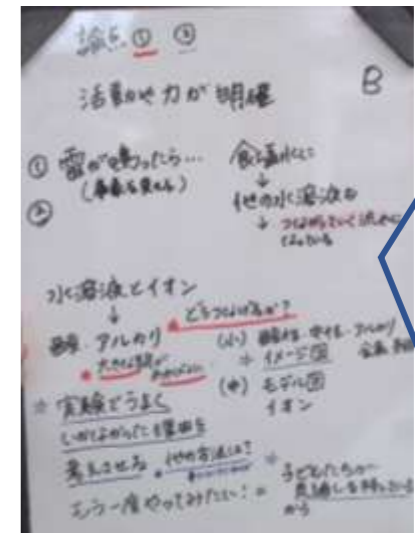 論点 ① ②
活動や力が明確
B
① 雷が鳴ったら…
②
食塩水に
↓
他の水溶液も
↓ つながっていく流れに
なっている
水溶液とイオン
↓
酸・アルカリ
どうつなげるか?
(小) 酸性・中性・アルカリ
イメージ図
(中) モデル図
イオン
☆ 実験でうまく
いかなかったら理由を
考えさせる。他の方法は?
もう一度やってみたい!=
子どもたちが
見通しを持っている
から